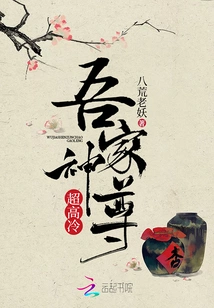 八荒老妖 著
吾家神尊
WUJIASHENZUNCHAO
GAOLENG
超高冷
云起书院